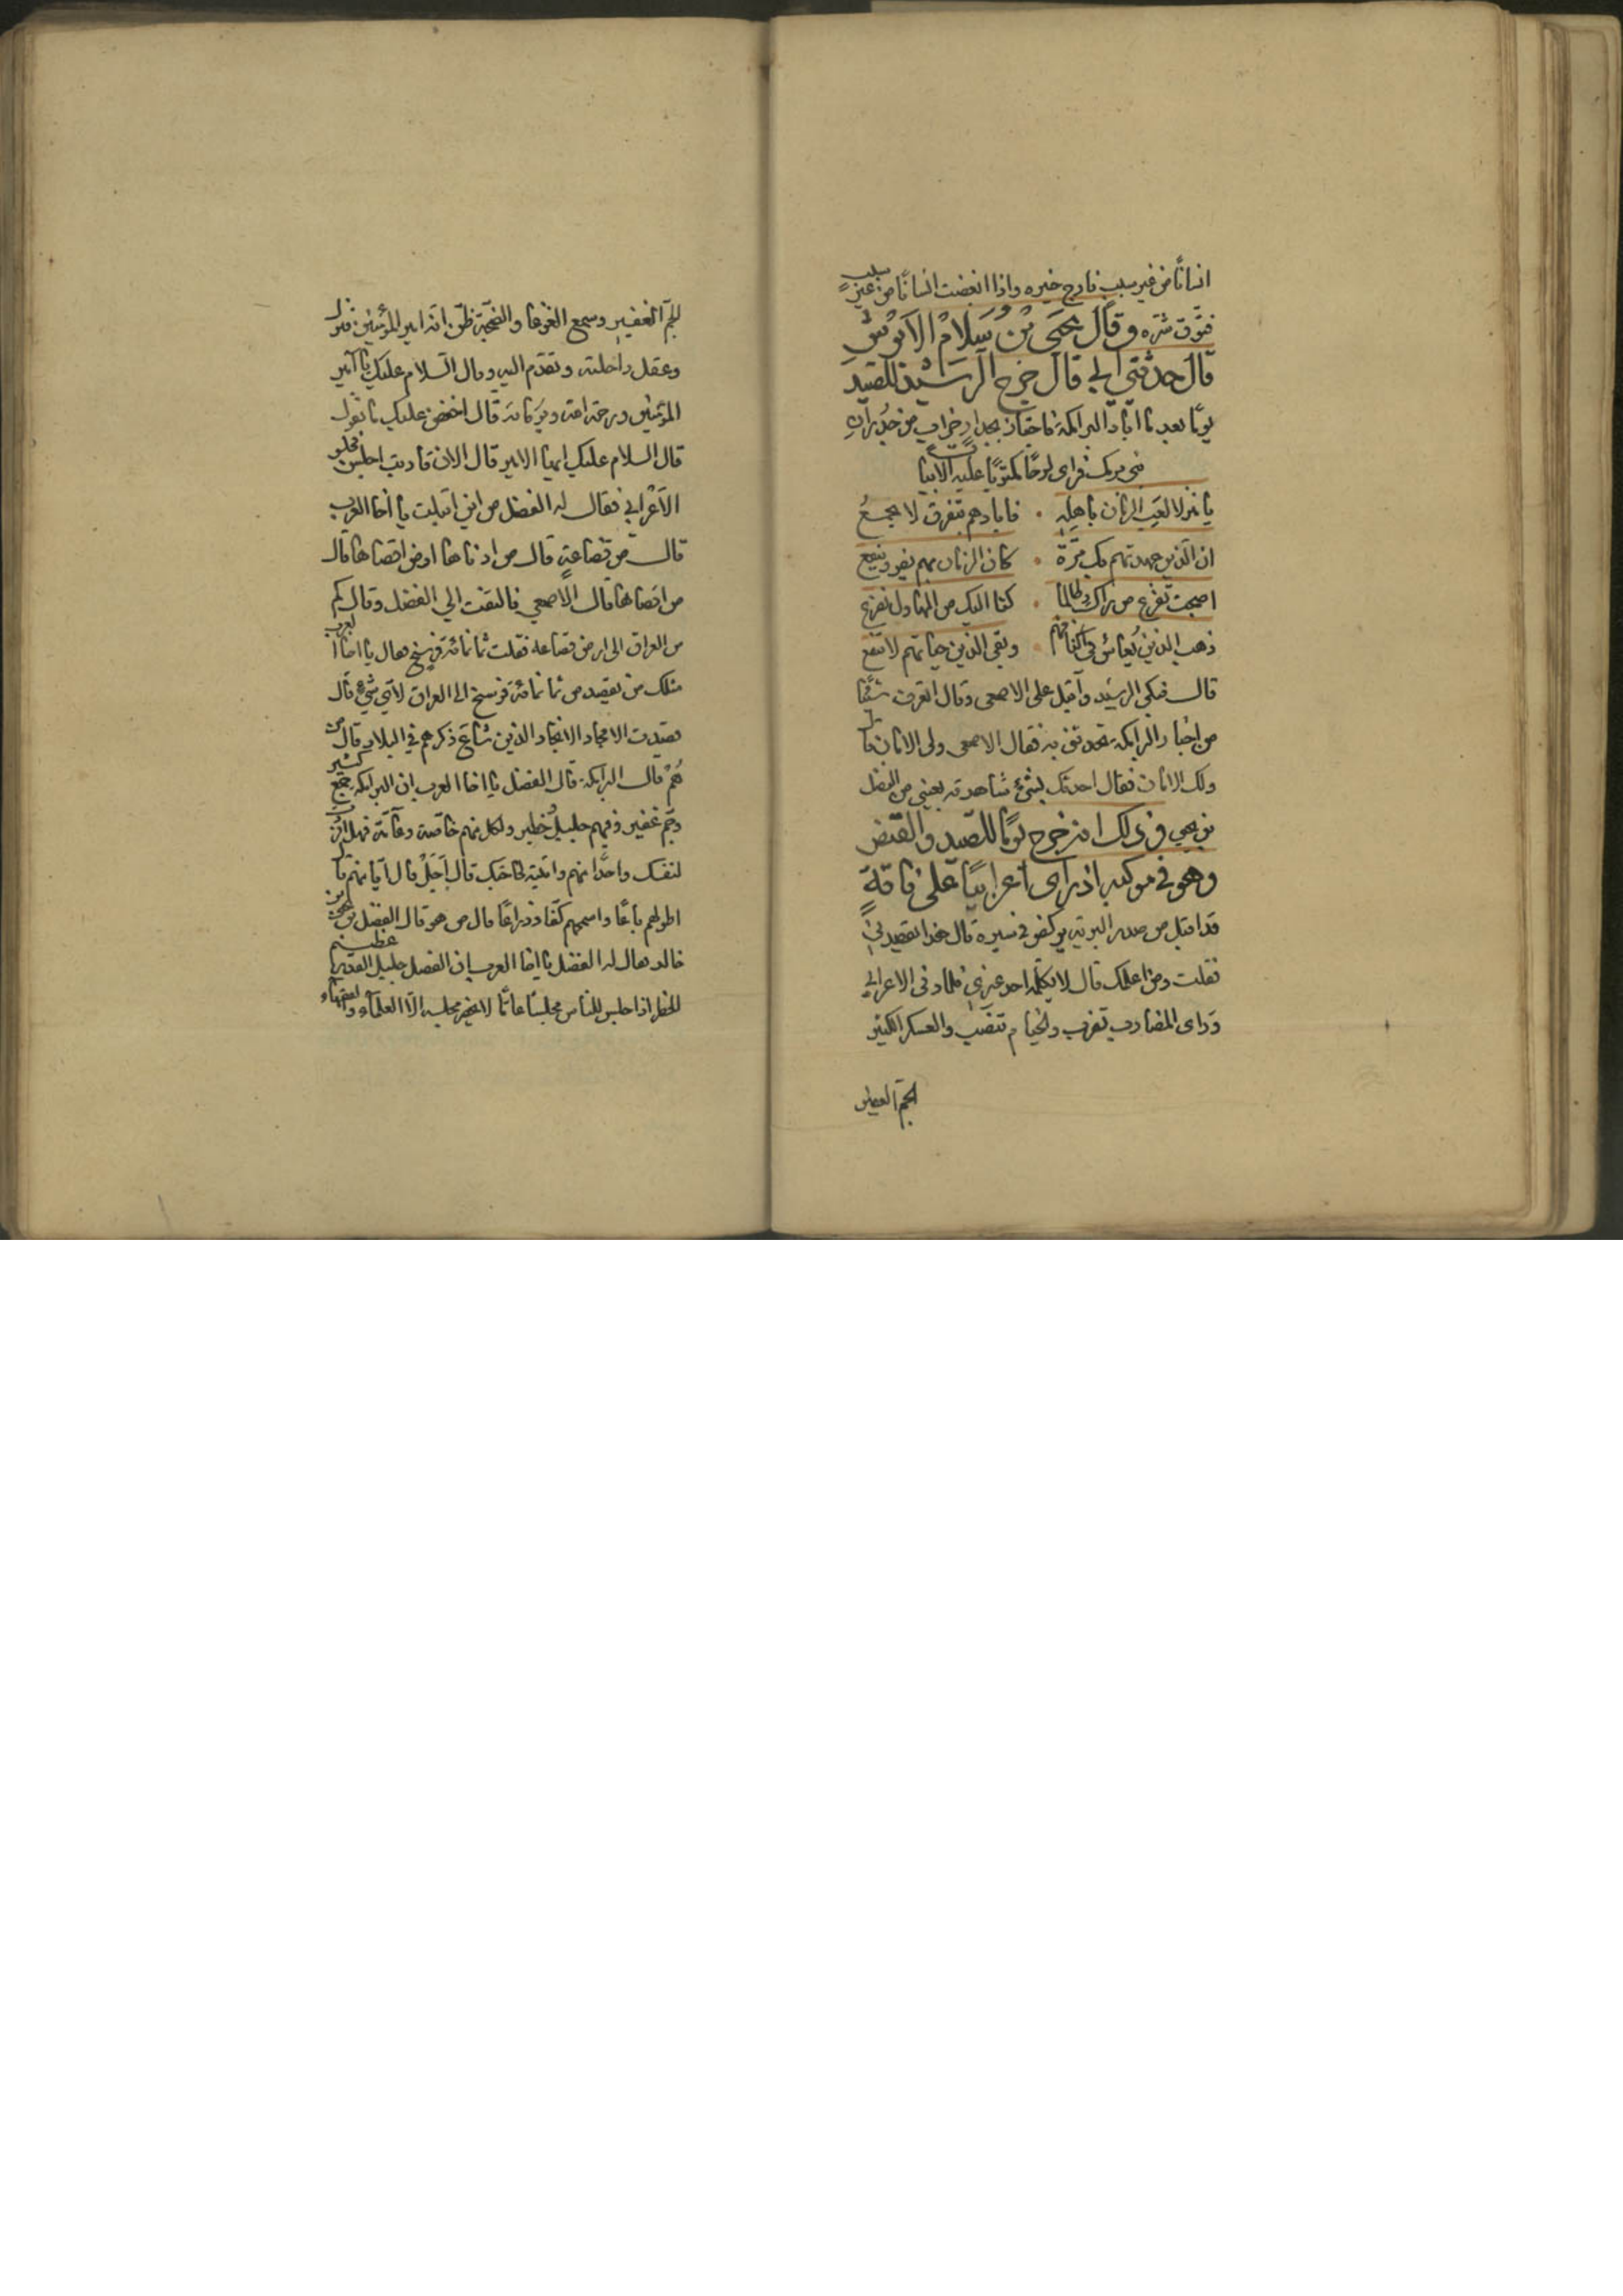 انسانًا من غير سبب فارج خيره واذا ابغضت انسانًا من غير سبب
فتوق شره وقال يحيى بن سلام الابرش
قال حدثني ابي قال خرج الرشيد للصيد
يومًا بعد ما اباد البرامكة فاجتاز بجدار خراب من جدران
بني برمك فراى لوحًا مكتوبًا عليه الابيات
يا منزلا لعب الزمان باهله . فابادهم بتفرق لا يجمع
ان الذين عهدتهم بك مرة . كان الزمان بهم يضر وينفع
اصبحت تفزع من رآك وطالما . كنا اليك من المهاول نفزع
ذهب الذين يعاش في اكنافهم . وبقي الذين حياتهم لا تنفع
قال فبكى الرشيد واقبل على الاصمعي وقال اتعرف شيئًا
من اخبار البرامكة تحدثني به فقال الاصمعي ولي الامان قال
ولك الامان فقال احدثك بشيء شاهدته بعيني من الفضل
بن يحيى وذلك انه خرج يومًا للصيد والقنص
وهو في موكبه اذ راى اعرابيًا على ناقةٍ
قد اقبل من صدر البرية يركض في سيره قال هذا يقصدني
فقلت ومن اعلمك قال لا يكلمه احد غيري فلما دنى الاعرابي
وراى المضارب تضرب والخيام تنصب والعسكر الكثير
الجم الغفير
الجم الغفير وسمع الغوغا والضجة ظن انه امير المؤمنين فنزل
وعقل راحلته وتقدم اليه وقال السلام عليك يا امير
المؤمنين ورحمة الله وبركاته قال اخفض عليك ما تقول
قال السلام عليك ايها الامير قال الان قاربت اجلس فجلس
الاعرابي فقال له الفضل من اين اقبلت يا اخا العرب
قال من قضاعة قال من ادناها او من اقصاها قال
من اقصاها قال الاصمعي فالتفت الي الفضل وقال كم
من العراق الى ارض قضاعة فقلت ثمانمائة فرسخ فقال يا اخا العرب
مثلك من يقصد من ثمانمائة فرسخ الى العراق لاي شيء قال
قصدت الامجاد الانجاد الذين شاع ذكرهم في البلاد قال من
هم قال البرامكة قال الفضل يا اخا العرب ان البرامكة جمع كثير
وجم غفير وفيهم جليل خطير ولكل منهم خاصة وعامة فهل افرزت
لنفسك واحدًا منهم واتيته لحاجتك قال اجل قال ايا منهم قال
اطولهم باعًا واسمحهم كفًا وذراعًا قال من هو قال الفضل بن يحيى بن
خالد فقال له الفضل يا اخا العرب ان الفضل جليل القدر عظيم
الخطر اذا جلس للناس مجلسًا عامًا لا يحضر مجلسه الا العلماء والفقهاء